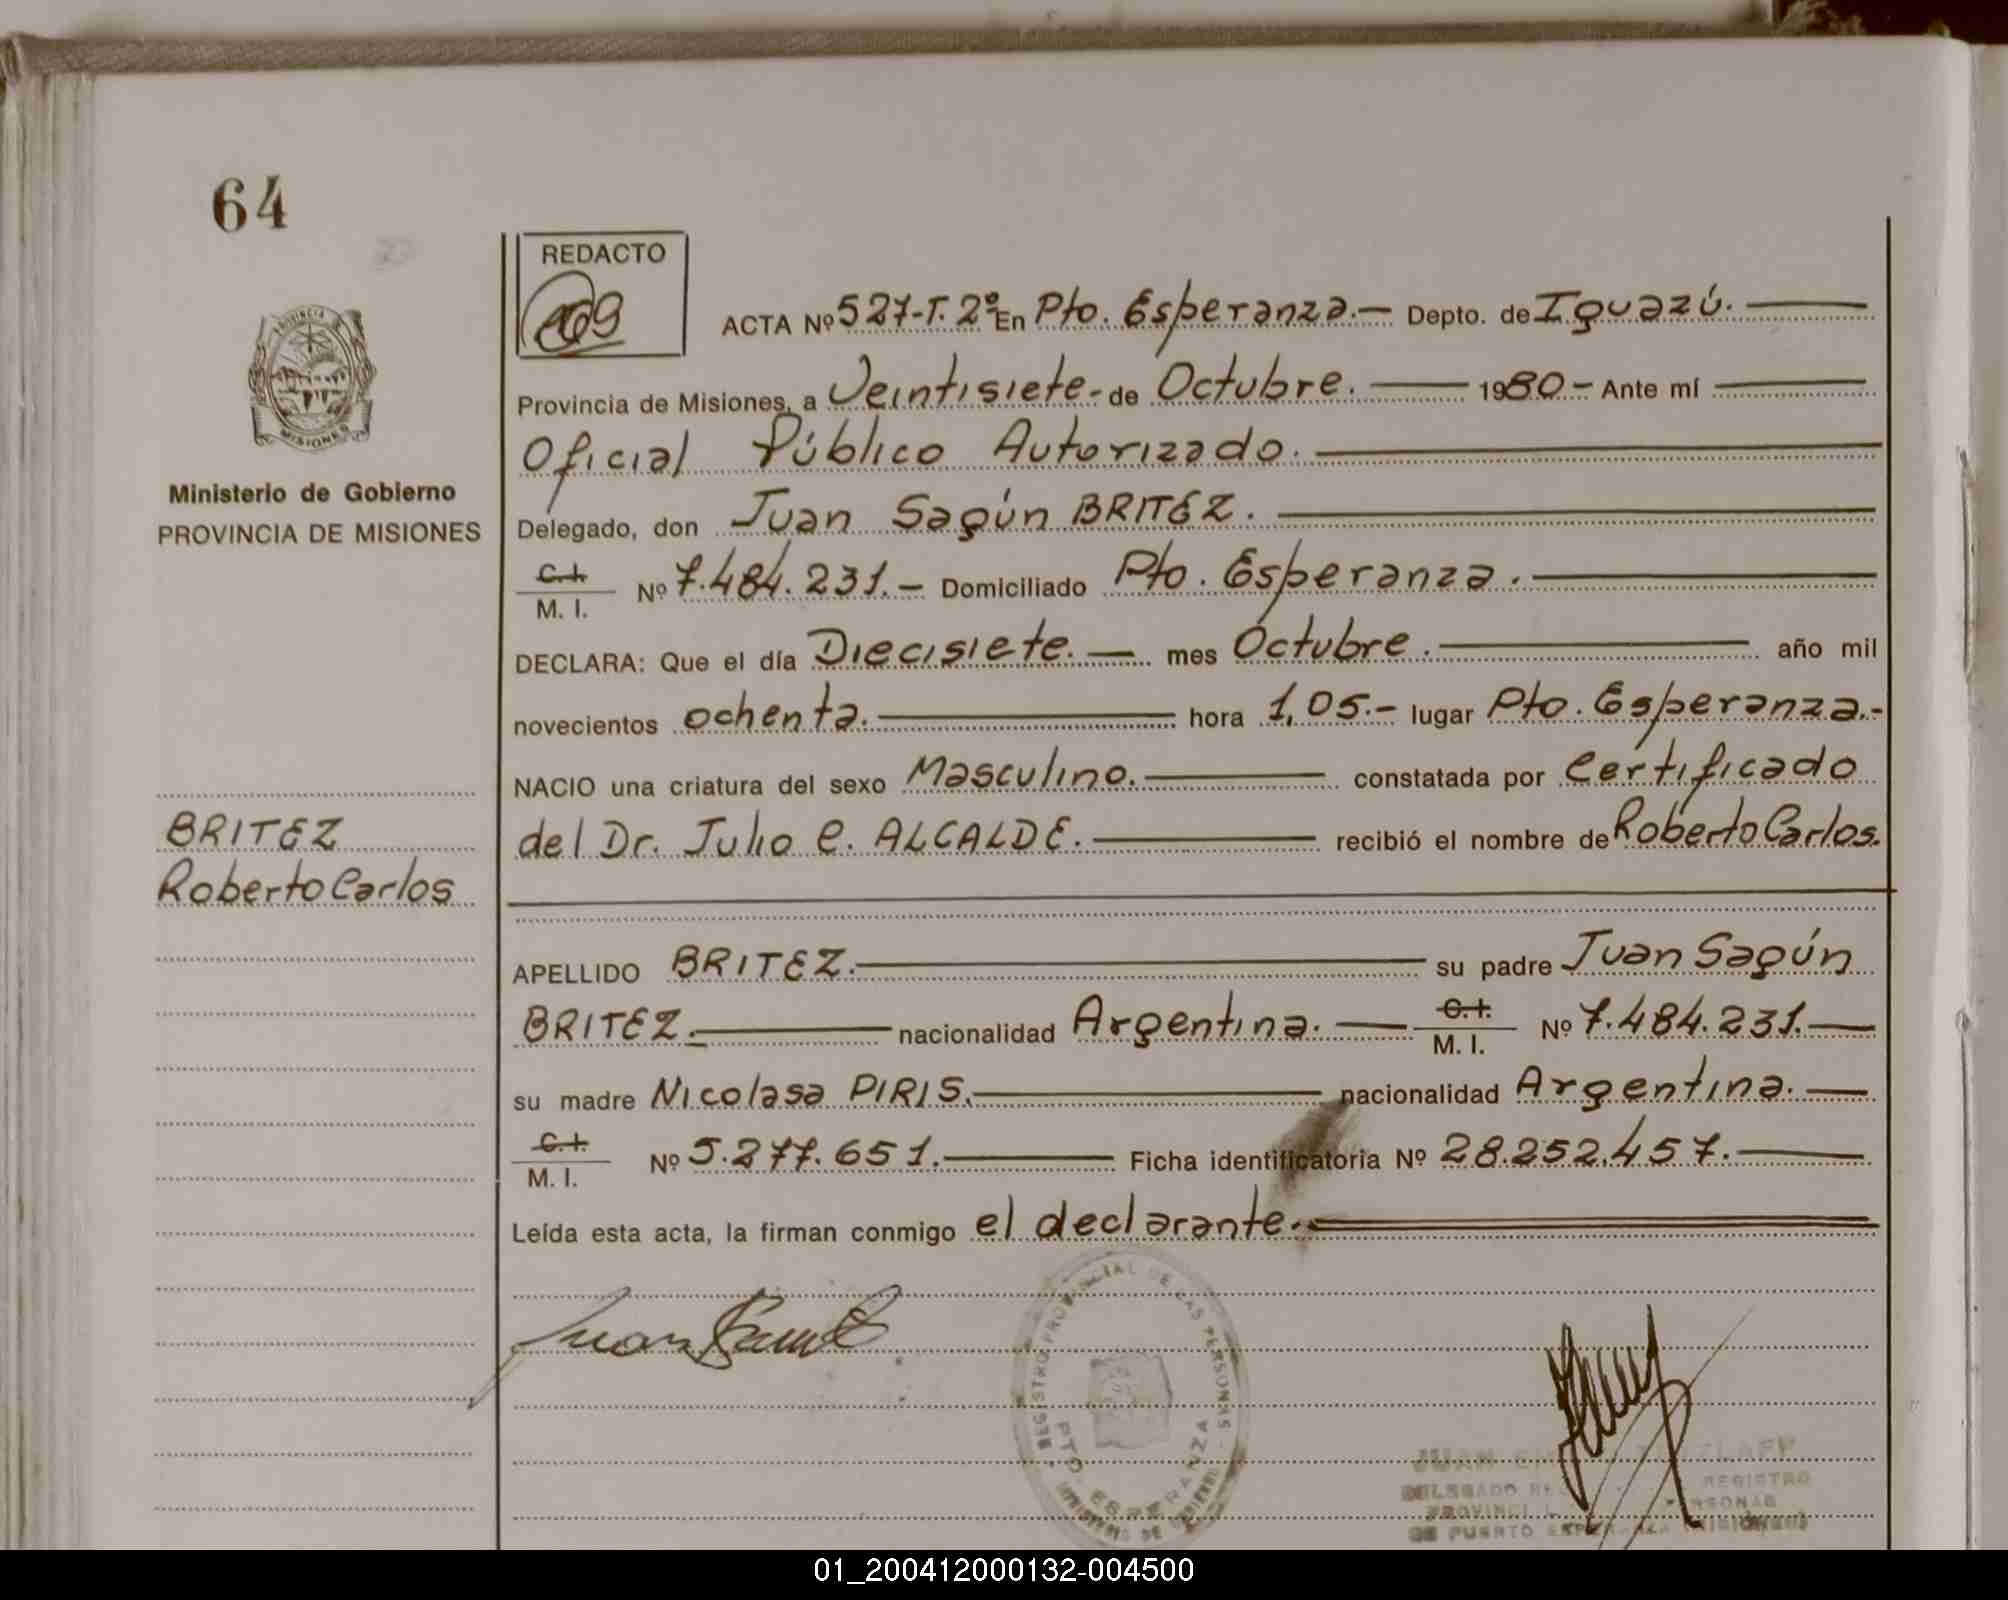 64
REDACTO
ACTA Nº 527-T. 2º En Pto. Esperanza.— Depto. de Iguazú.
Provincia de Misiones, a Veintisiete- de Octubre. 1980.- Ante mí
Oficial Público Autorizado.
Ministerio de Gobierno
PROVINCIA DE MISIONES
Delegado, don Juan Sagún BRITEZ.
C.I. M. I. Nº 7.484.231.— Domiciliado Pto. Esperanza.
DECLARA: Que el día Diecisiete.— mes Octubre. año mil
novecientos ochenta. hora 1,05.- lugar Pto. Esperanza.-
NACIO una criatura del sexo Masculino. constatada por Certificado
del Dr. Julio C. ALCALDE. recibió el nombre de Roberto Carlos.
BRITEZ
Roberto Carlos
APELLIDO BRITEZ. su padre Juan Sagún
BRITEZ. nacionalidad Argentina. C.I. M. I. Nº 7.484.231.
su madre Nicolasa PIRIS. nacionalidad Argentina.
C.I. M. I. Nº 5.277.651. Ficha identificatoria Nº 28.252.457.
Leída esta acta, la firman conmigo el declarante.
REGISTRO PROVINCIAL DE LAS PERSONAS
PTO. ESPERANZA
MINISTERIO DE GOBIERNO
JUAN
DELEGADO REGISTRO
DE PUERTO ESPERANZA
01_200412000132-004500